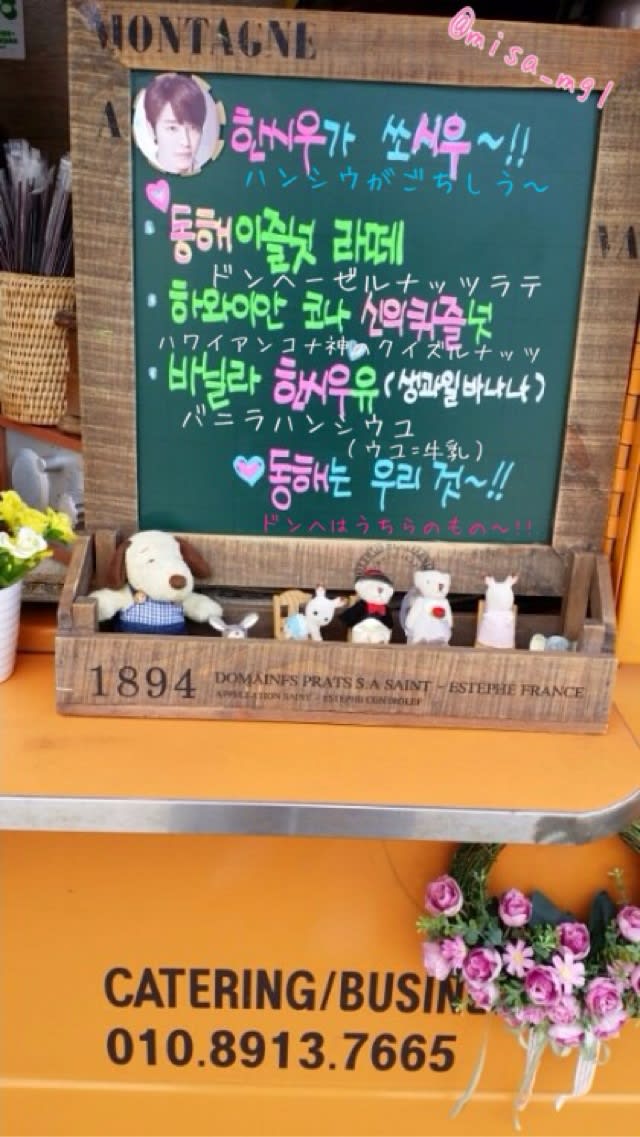 MONTAGNE
@misa_mgl
한씨우가 쏘시우~!!
ハンシウがごちしう～
동해이즐넛 라떼
ドンヘーゼルナッツラテ
하와이안 코나 신의퀴즐넛
ハワイアンコナ神のクイズルナッツ
바닐라 한씨우유 (생과일바나나)
バニラハンシウユ
(ウユ=牛乳)
동해는 우리 것~!!
ドンヘはうちらのもの～!!
1894 DOMAINES PRATS S.A SAINT - ESTEPHE FRANCE
APPELLATION SAINT - ESTEPHE CONTROLEE
CATERING/BUSINE
010.8913.7665